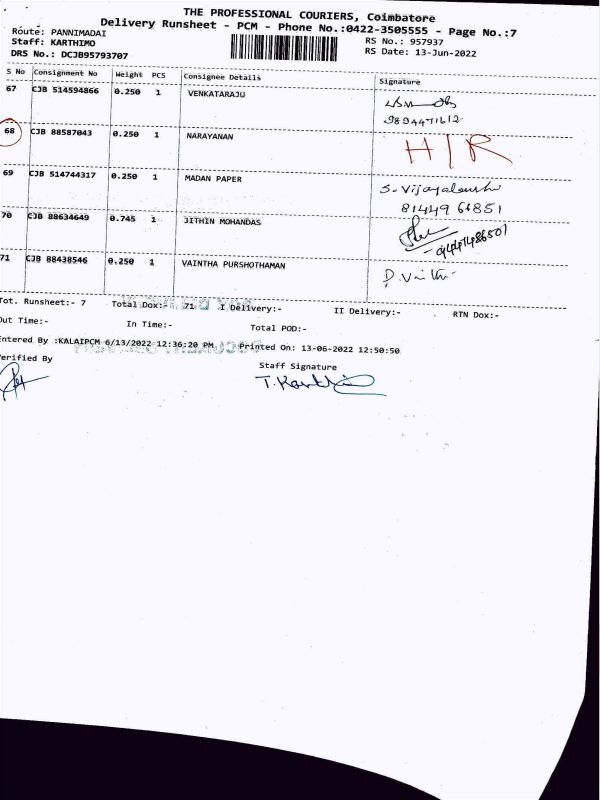 THE PROFESSIONAL COURIERS, Coimbatore
Delivery Runsheet - PCM - Phone No.:0422-3505555 - Page No.:7
Route: PANNIMADAI
RS No.: 957937
Staff: KARTHIMO
RS Date: 13-Jun-2022
DRS No.: DCJB95793707
S No Consignment No Weight PCS Consignee Details Signature
67 CJB 514594866 0.250 1 VENKATARAJU
9894471612
68 CJB 88587043 0.250 1 NARAYANAN H/R
69 CJB 514744317 0.250 1 MADAN PAPER S-Vijayalakshmi
81449 66851
70 CJB 88634649 0.745 1 JITHIN MOHANDAS
9447486507
71 CJB 88438546 0.250 1 VAINTHA PURSHOTHAMAN
Tot. Runsheet:- 7 Total Dox:- 71 I Delivery:- II Delivery:- RTN Dox:-
Out Time:- In Time:- Total POD:-
Entered By :KALAIPCM 6/13/2022 12:36:20 PM. Printed On: 13-06-2022 12:50:50
Verified By Staff Signature